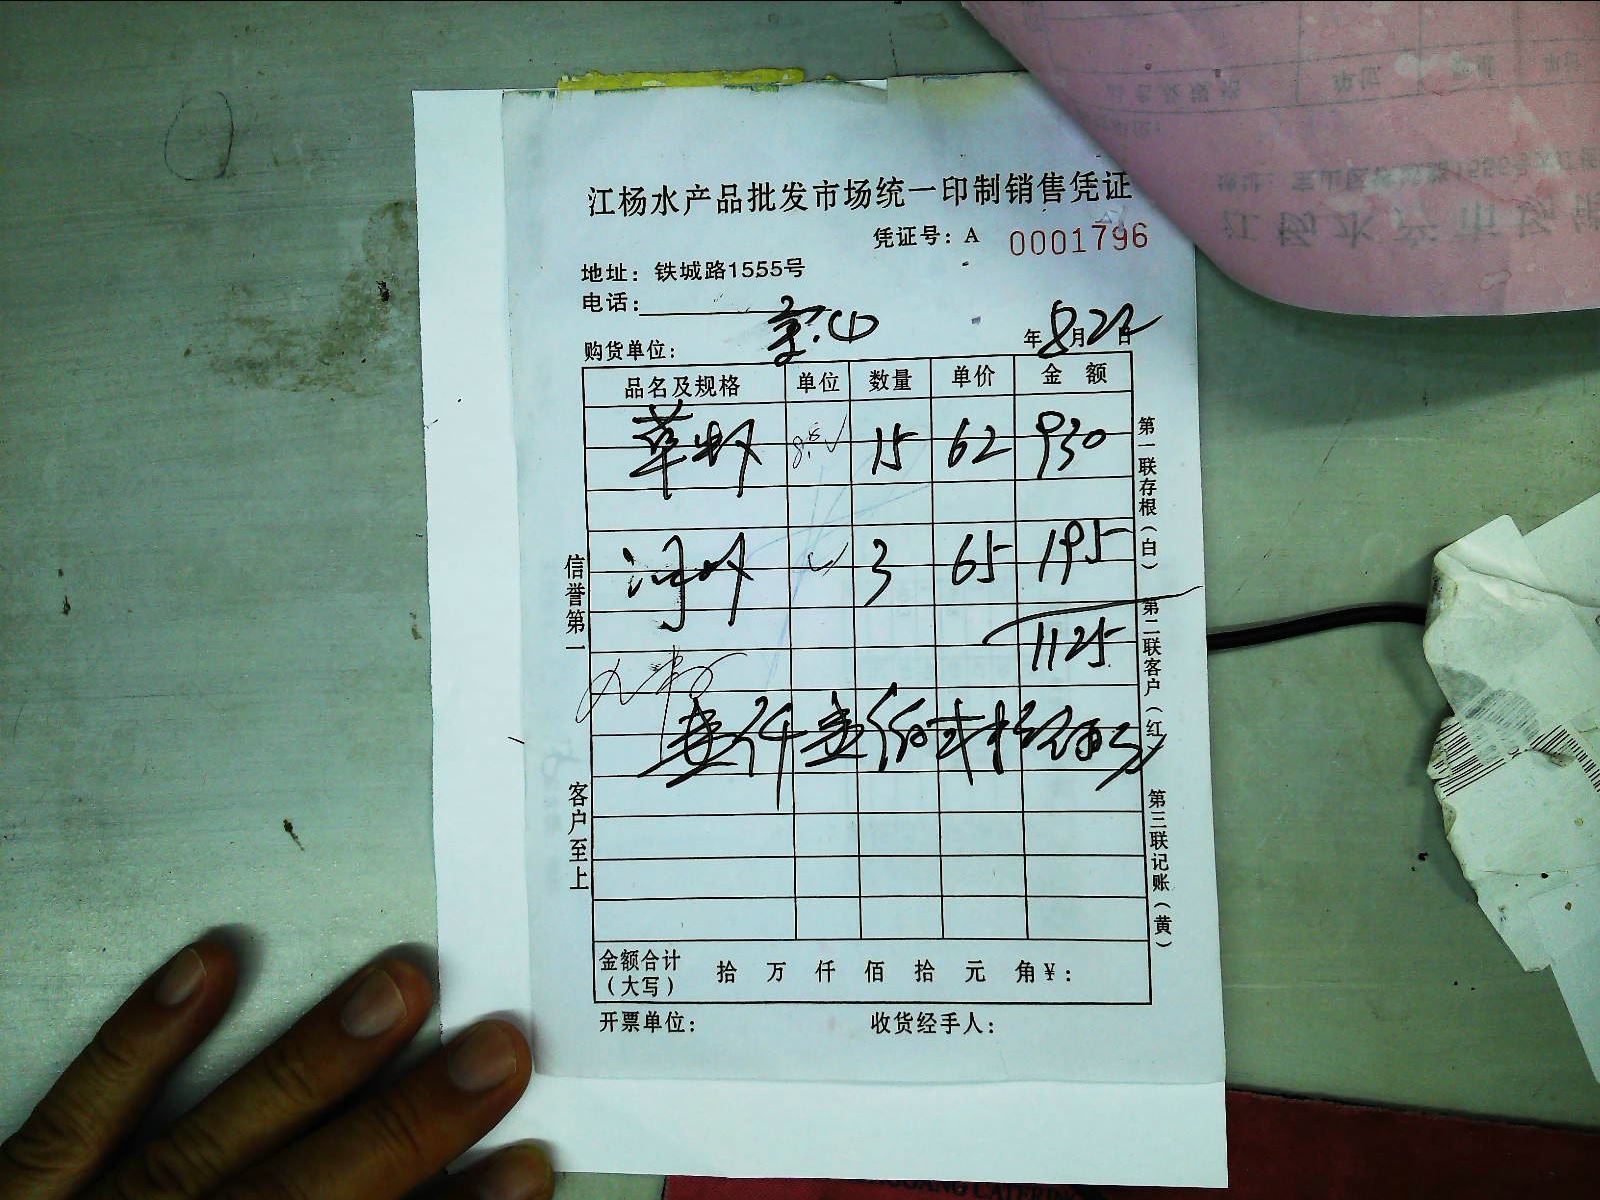 江杨水产品批发市场统一印制销售凭证
凭证号：A 0001796
地址：铁城路1555号
电话：
购货单位： 年8月22日
品名及规格 单位 数量 单价 金额
草虾 15 62 930
河虾 3 65 195
1125
壹仟壹佰弍拾伍
金额合计（大写） 拾 万 仟 佰 拾 元 角￥：
开票单位： 收货经手人：
信誉第一
客户至上
第一联存根（白）
第二联客户（红）
第三联记账（黄）